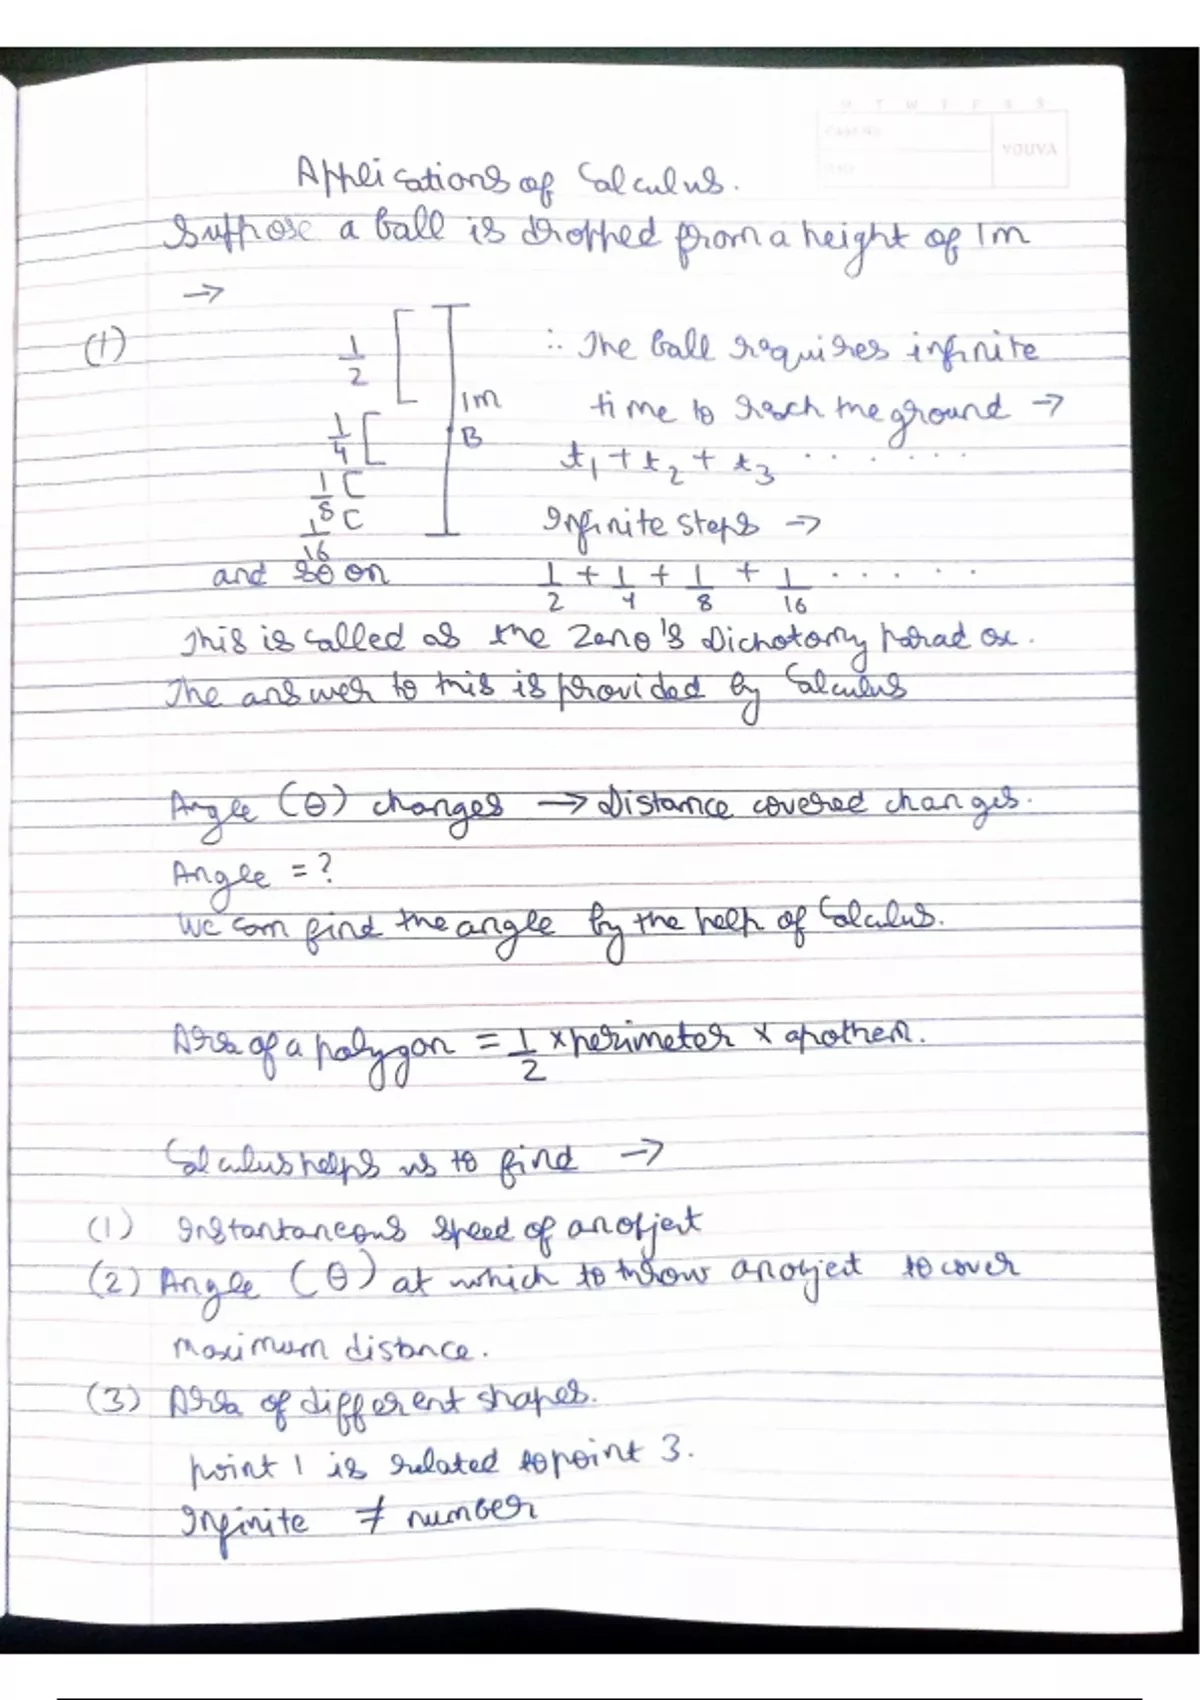 M T W T F S S
YOUVA
Date
Applications of Calculus.
Suppose a ball is dropped from a height of 1m
→
(1)
1/2 [ 1m ∴ The ball requires infinite
time to reach the ground →
1/4 [ B t₁ + t₂ + t₃ . . . . . . .
1/8 [
1/16 [ Infinite steps →
and so on 1/2 + 1/4 + 1/8 + 1/16 . . . . . .
This is called as the Zeno's Dichotomy parad ox.
The answer to this is provided by Calculus
Angle (θ) changes → Distance covered changes.
Angle = ?
We can find the angle by the help of Calculus.
Area of a polygon = 1/2 × perimeter × apothem.
Calculus helps us to find →
(1) Instantaneous speed of an object
(2) Angle (θ) at which to throw an object to cover
maximum distance.
(3) Area of different shapes.
point 1 is related to point 3.
Infinite ≠ number